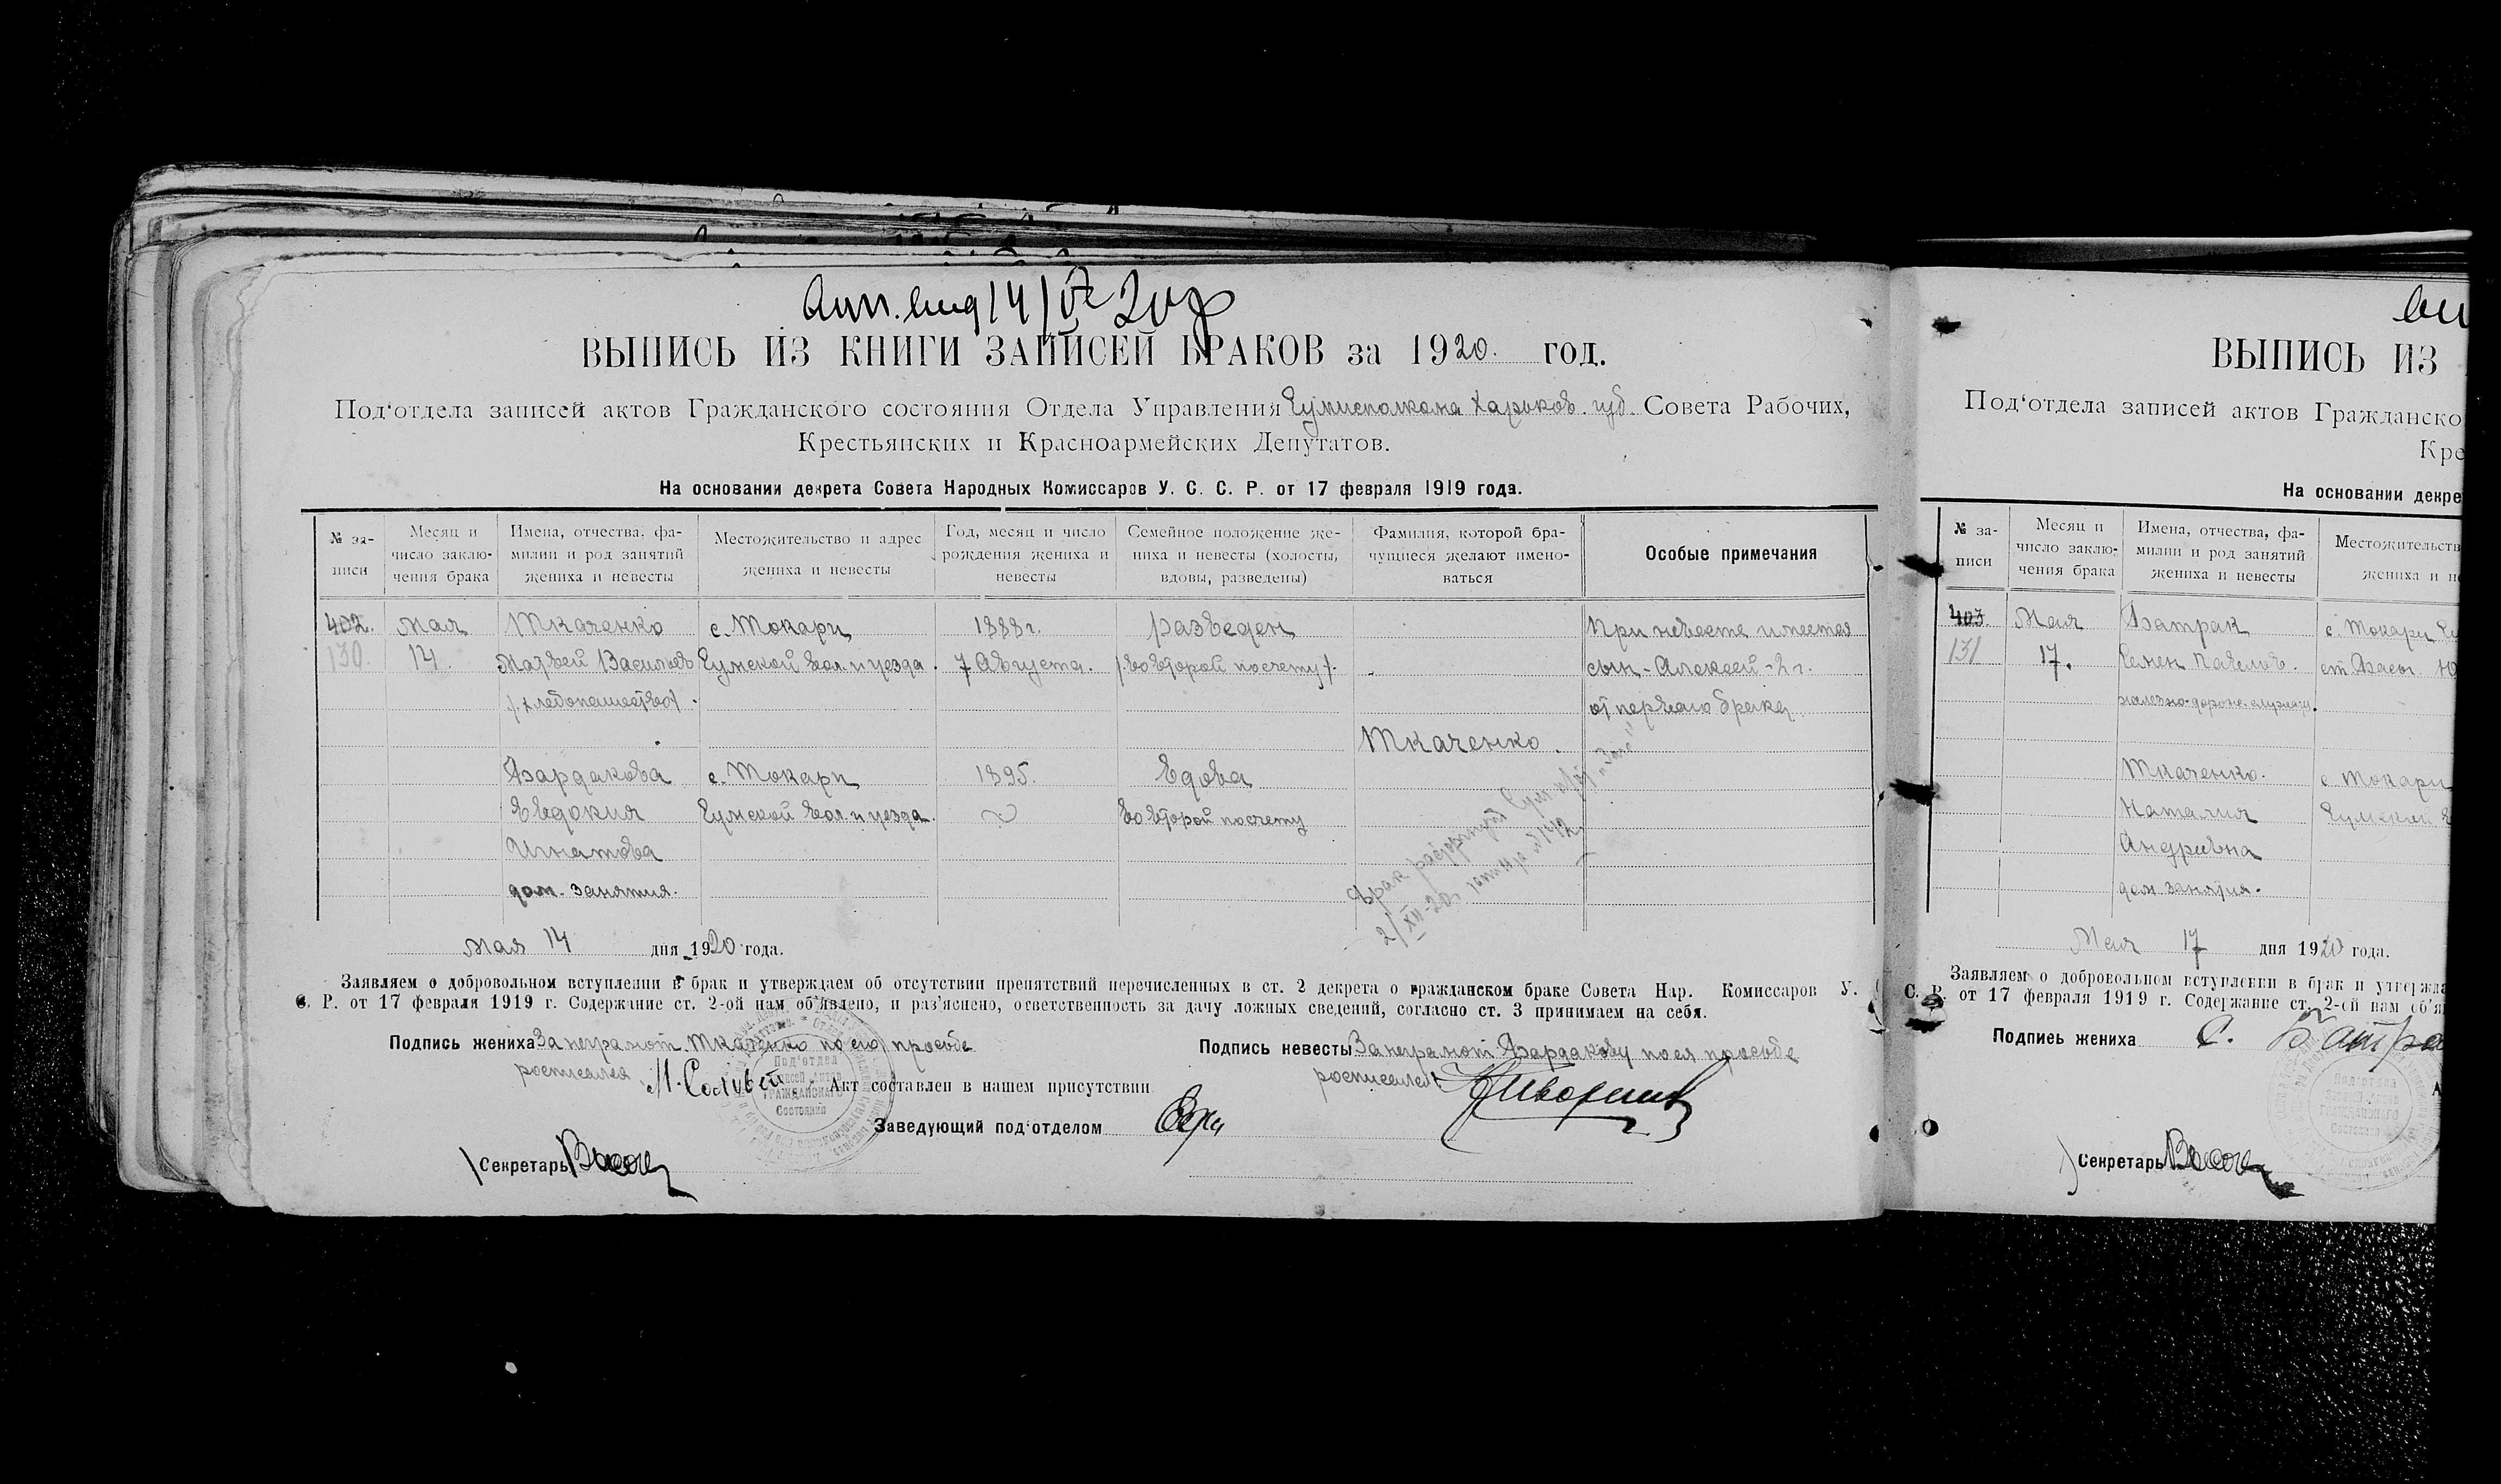 14/V 20
ВЫПИСЬ ИЗ КНИГИ ЗАПИСЕЙ БРАКОВ за 1920. год.
Под'отдела записей актов Гражданского состояния Отдела Управления Сумисполкома Харьков. губ. Совета Рабочих,
Крестьянских и Красноармейских Депутатов.
На основании декрета Совета Народных Комиссаров У. С. С. Р. от 17 февраля 1919 года.
№ за-
писи
Месяц и
число заклю-
чения брака
Имена, отчества, фа-
милии и род занятий
жениха и невесты
Местожительство и адрес
жениха и невесты
Год, месяц и число
рождения жениха и
невесты
Семейное положение же-
ниха и невесты (холосты,
вдовы, разведены)
Фамилия, которой бра-
чущиеся желают имено-
ваться
Особые примечания
402. мая Ткаченко с. Токари 1888 г. разведен При невесте имеется
130. 14. Матвей Васильев Сумской вол. и уезда. 7 Августа. /. во второй посчету /. сын - Алексей - 2 г.
/. хлебопашество /. от перваго брака
Ткаченко.
Бардакова с. Токари 1895. Вдова
Евдокия Сумской вол. и уезда. во второй посчету
Игнатова
дом. занятия.
брак расторгнут
2/XII-20 г.
мая 14 дня 1920 года.
Заявляем о добровольном вступлении в брак и утверждаем об отсутствии препятствий перечисленных в ст. 2 декрета о гражданском браке Совета Нар. Комиссаров У.
С. Р. от 17 февраля 1919 г. Содержание ст. 2-ой нам об'явлено, и раз'яснено, ответственность за дачу ложных сведений, согласно ст. 3 принимаем на себя.
Подпись жениха За неграмот. Ткаченко по его просьбе
росписался М. Соловей
Подпись невесты За неграмот. Бардакову по ея просьбе
росписался
Акт составлен в нашем присутствии
Заведующий под'отделом
Секретарь
Под'отдел
Записей Актов
ГРАЖДАНСКАГО
Состояния
ВЫПИСЬ ИЗ
Под'отдела записей актов Гражданско
Кре
На основании декре
№ за-
писи
Месяц и
число заклю-
чения брака
Имена, отчества, фа-
милии и род занятий
жениха и невесты
Местожительств
жениха и н
403. Мая Батрак с. Токари Су
131 17. Семен Павелов. ст. Басы
железно-дорож. служащ.
Ткаченко. с. Токари
Наталия Сумской в
Андриевна
дом. занятия.
Мая 17 дня 1920 года.
Заявляем о добровольном вступлении в брак и утвержда
С. Р. от 17 февраля 1919 г. Содержание ст. 2-ой нам об'я
Подпись жениха С. Батра
Секретарь
Под'отдел
ГРАЖДАНСКАГО
Состояния